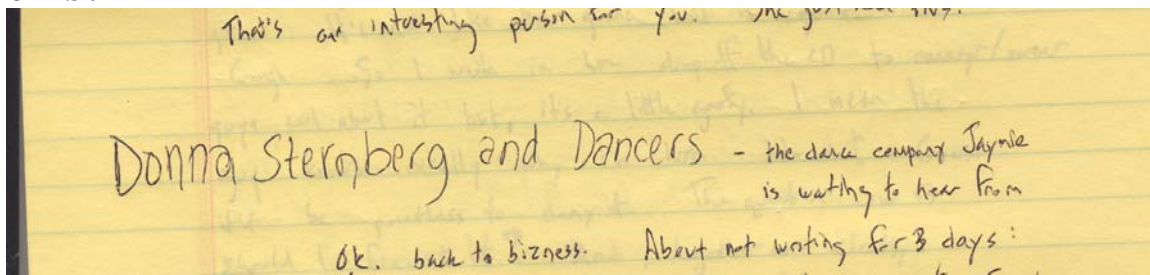 That's an intresting person for you. She just
Donna Sternberg and Dancers - the dance company Jaymie
is waiting to hear from
Ok. back to bizness. About not writing for 3 days: